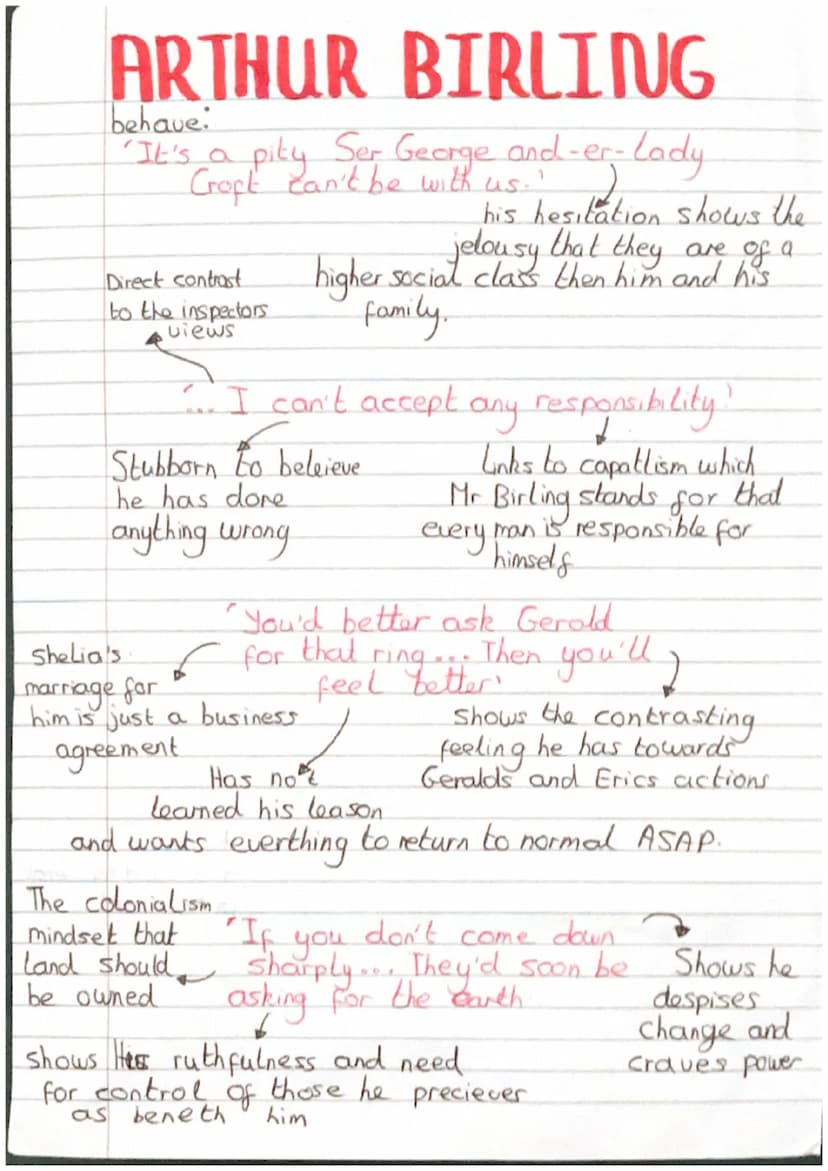 ARTHUR BIRLING
behave:
'It's a pity Ser George and-er-Lady
Croft can't be with us.'
his hesitation shows the
jelousy that they are of a
higher social class then him and his
family.
Direct contrast
to the inspectors
views
'... I can't accept any responsibility'
Stubborn to beleieve
he has done
anything wrong
Links to capatlism which
Mr Birling stands for that
every man is responsible for
himself
'You'd better ask Gerald
for that ring... Then you'll
feel better'
Shelia's
marriage for
him is just a business
agreement
Shows the contrasting
feeling he has towards
Geralds and Erics actions
Has not
learned his leason
and wants everthing to return to normal ASAP.
The colonialism
mindset that
land should
be owned
'If you don't come down
sharply... They'd soon be
asking for the earth
Shows he
despises
change and
craves power
shows His ruthfulness and need
for control of those he preciever
as beneth him